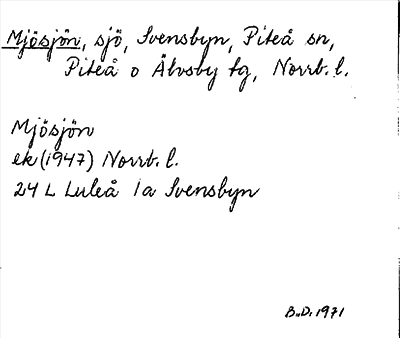 Mjösjön, sjö, Svensbyn, Piteå sn,
Piteå o Älvsby tg, Norrb. l.
Mjösjön
ek (1947) Norrb. l.
24 L Luleå 1a Svensbyn
B.D. 1971